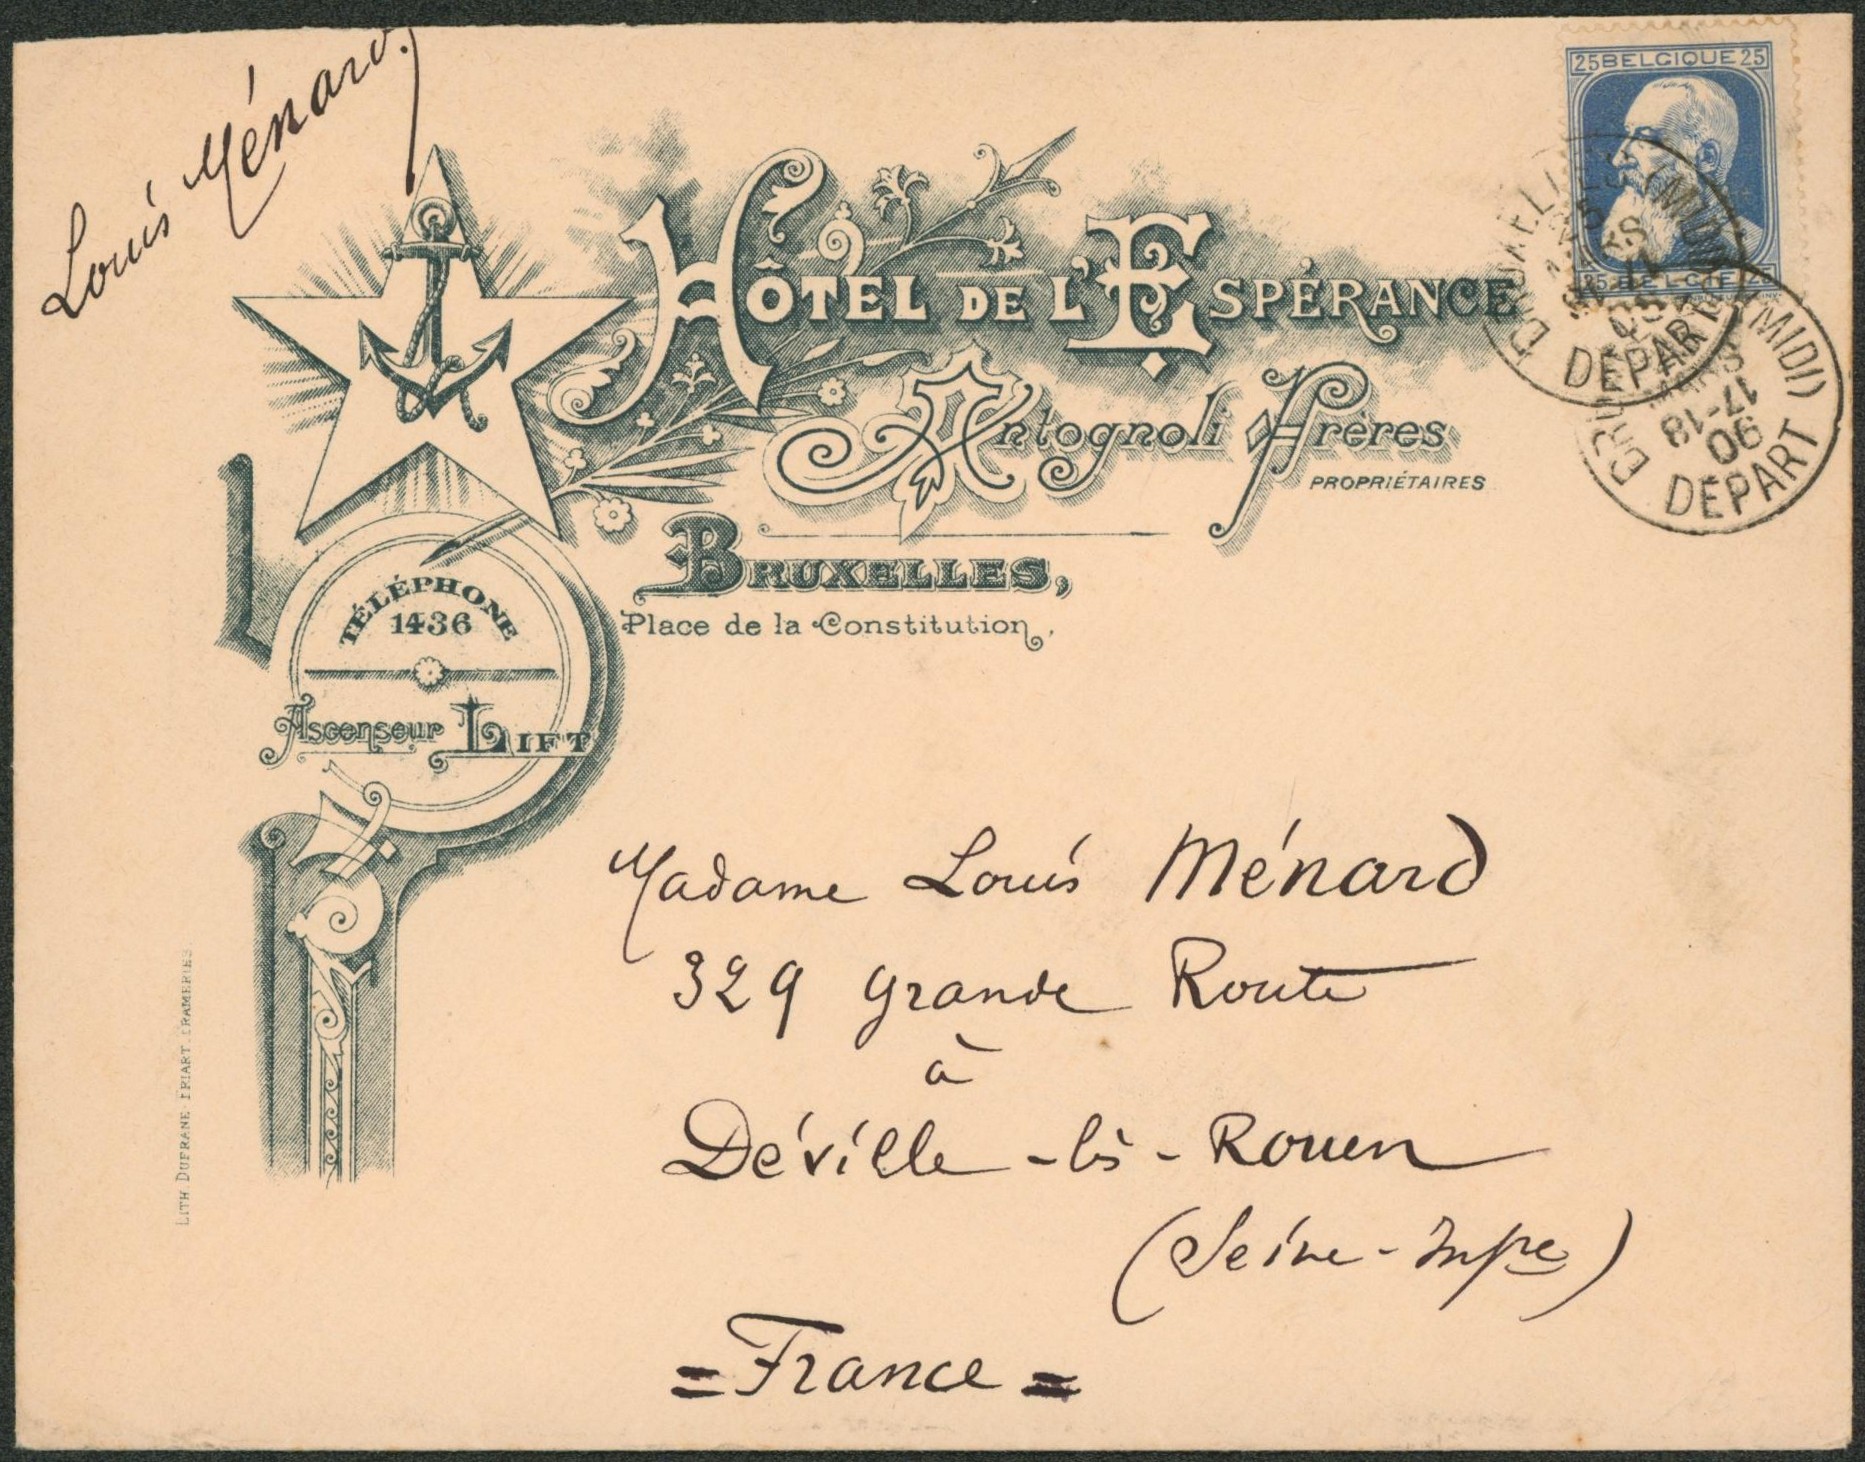 Louis Ménard.
25 BELGIQUE 25
25 BELGIE 25
BRUXELLES (MIDI)
DEPART
BRUXELLES (MIDI)
MARS
17-18
06
DEPART
HÔTEL DE L'ESPÉRANCE
Antognoli Frères
PROPRIÉTAIRES
BRUXELLES,
Place de la Constitution,
TÉLÉPHONE
1436
Ascenseur LIFT
Madame Louis Ménard
329 grande Route
à
Déville-lès-Rouen
(Seine-Infre)
=France=
LITH. DUFRANE-FRIART. FRAMERIES